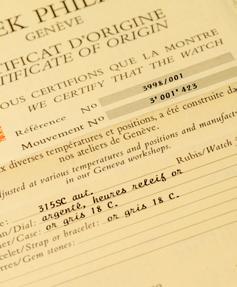 EK PHILI
GENÈVE
TIFICAT D'ORIGINE
TIFICATE OF ORIGIN
OUS CERTIFIONS QUE LA MONTRE
WE CERTIFY THAT THE WATCH
Référence No 3998/001
Mouvement No 3'001'423
x diverses températures et positions, a été construite da
nos ateliers de Genève.
djusted at various temperatures and positions and manufactu
in our Geneva workshops.
Rubis/Watch
315SC aut.
an/Dial: argenté, heures releif or
er/Case: or gris 18 C.
acelet/Strap or bracelet: or gris 18 C.
rres/Gem stones: